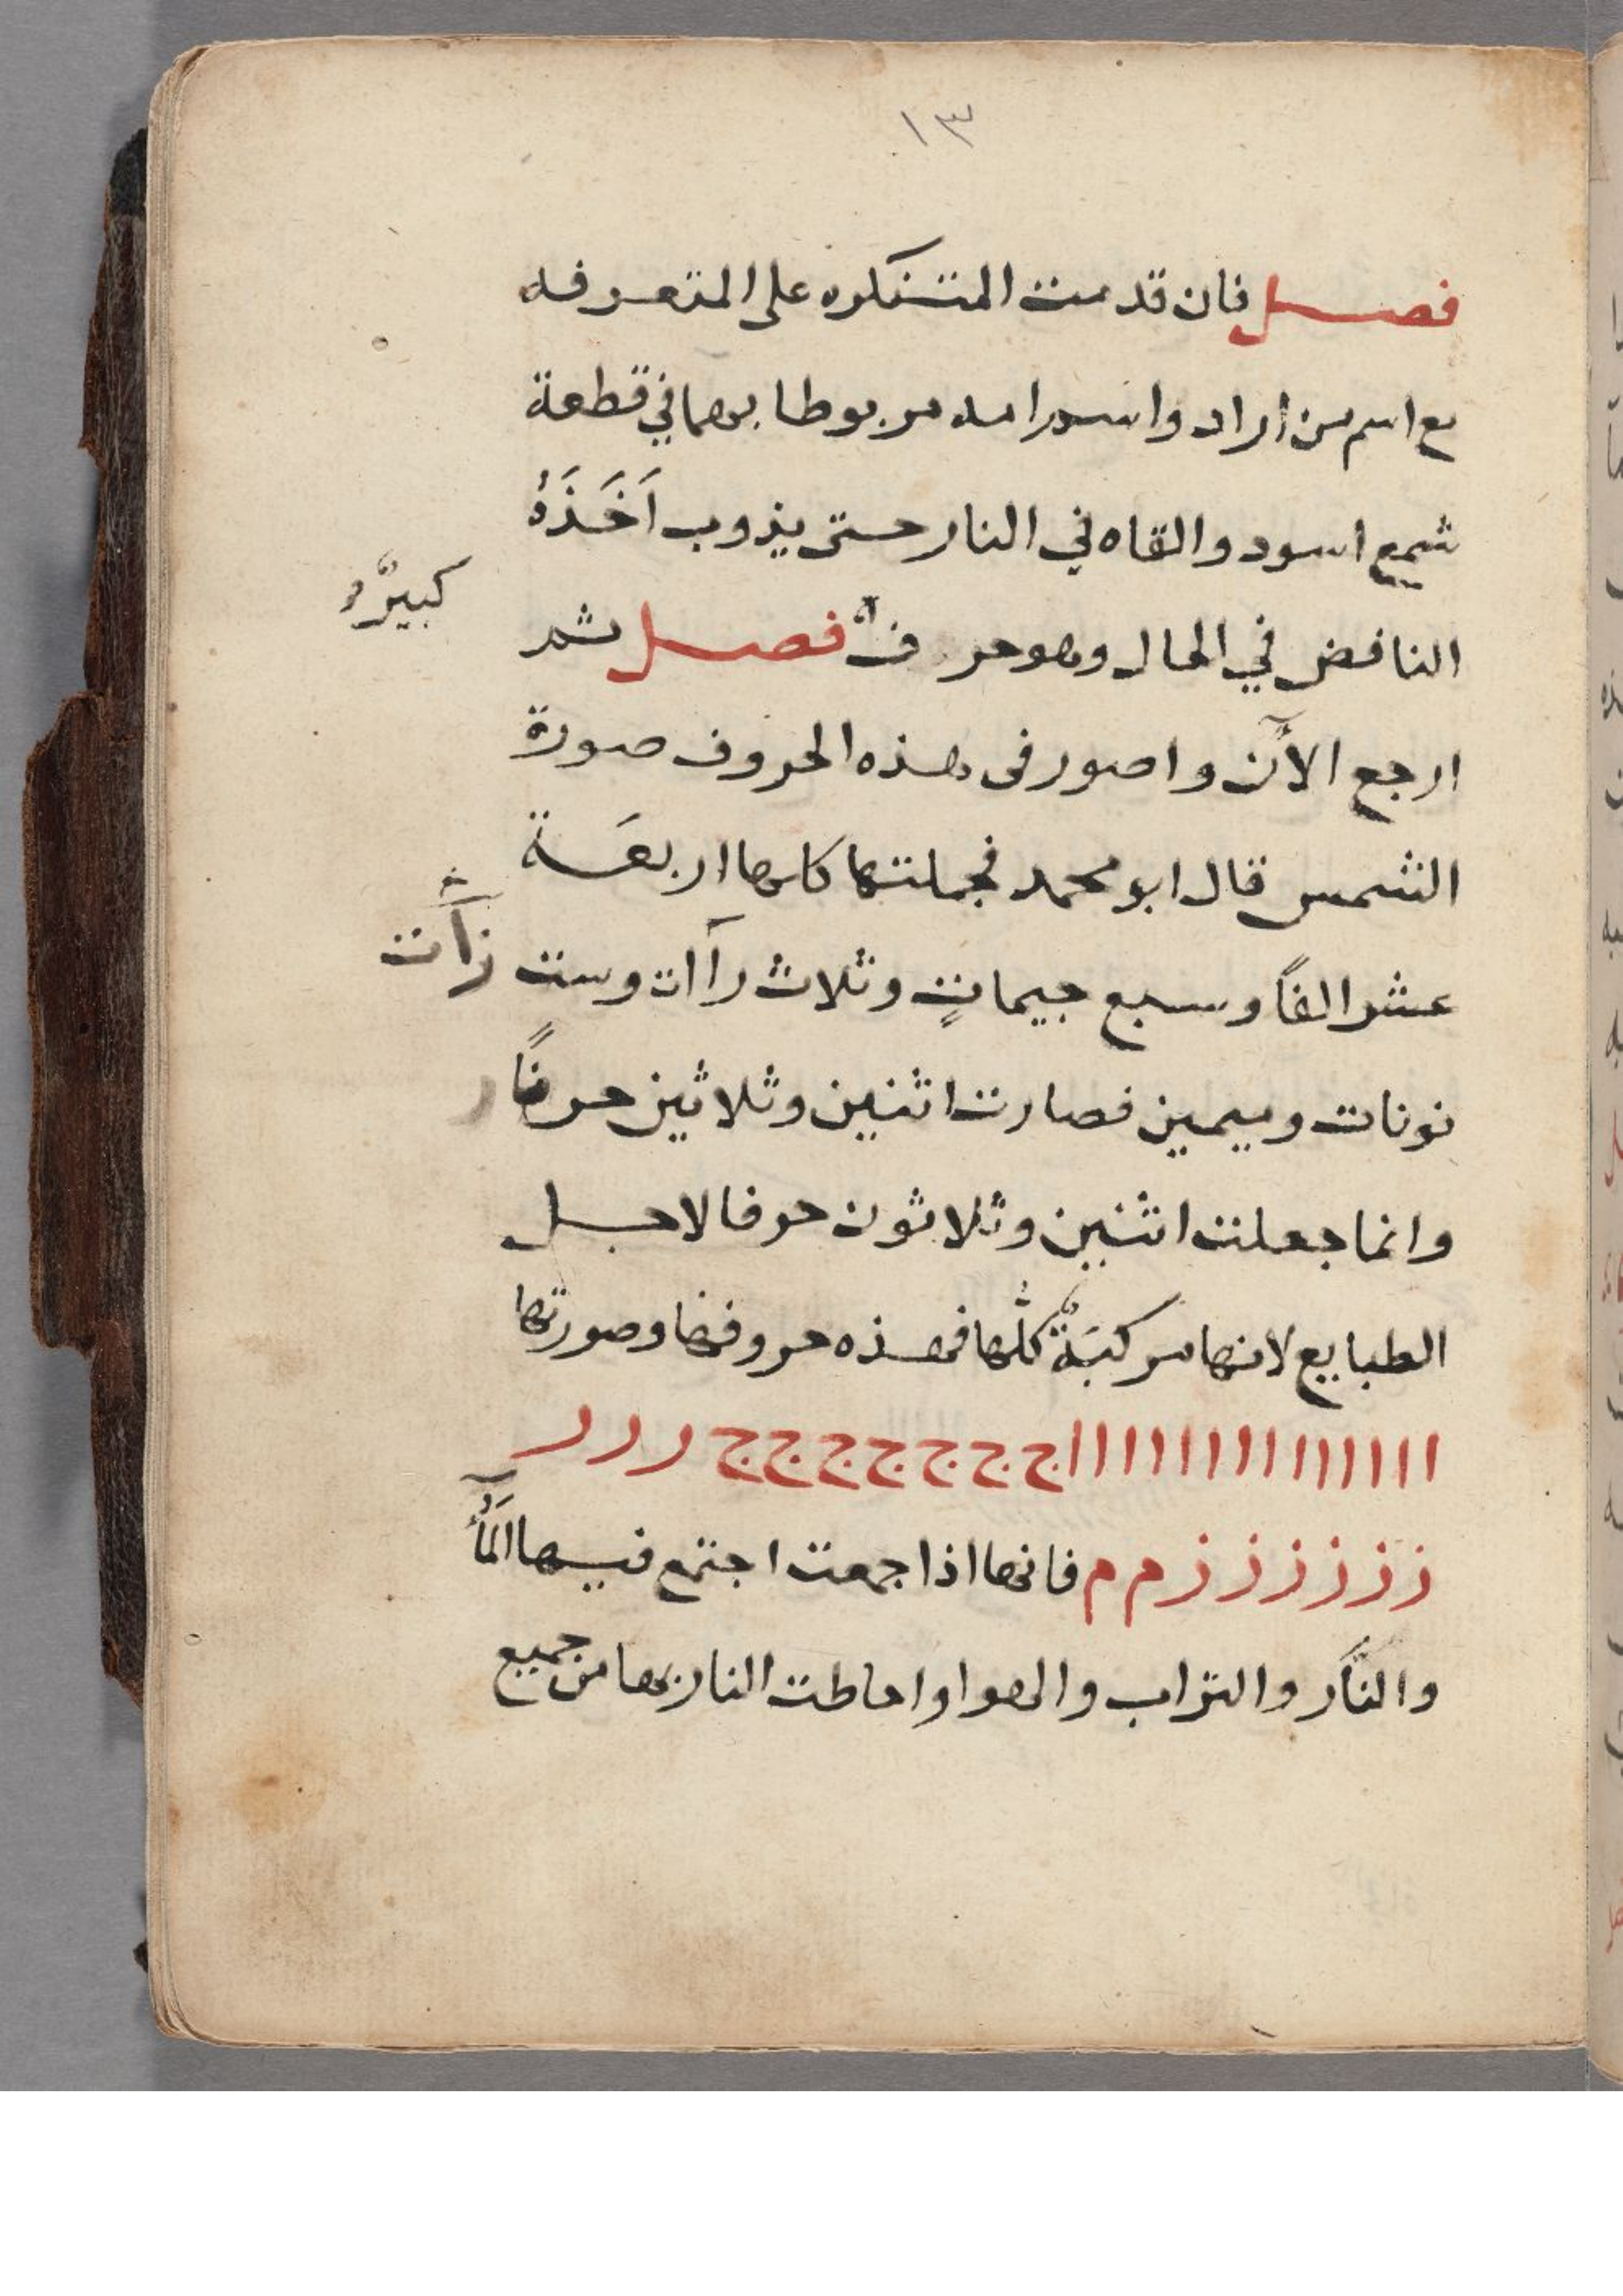 ١٣
فصل فان قدمت المتنكره على المتعرفه
مع اسم من اراد واسم امه مربوطا بهما في قطعة
شمع اسود والقاه في النار حتى يذوب اَخَذَهُ
النافض في الحال وهو حرف فصل ثم
كبيرٌ
ارجع الآن واصور فى هذه الحروف صورة
الشمس قال ابو محمد فجملتها كلها اربعَة
عشر الفاً وسبع جيماتٍ وثلاث رآات وست زآت
نونات وميمين فصارت اثنين وثلاثين حرفاً
وانما جعلت اثنين وثلاثون حرفا لاجل
الطبايع لانها مركبَةٌ كلُّها فهذه حروفها وصورتها
ا ا ا ا ا ا ا ا ا ا ا ا ا ا ج ج ج ج ج ج ج ر ر ر
ز ز ز ز ز ز م م فانها اذا جمعت اجتمع فيها المآُ
والنَّار والتراب والهوا واحاطت النار بها من جميع